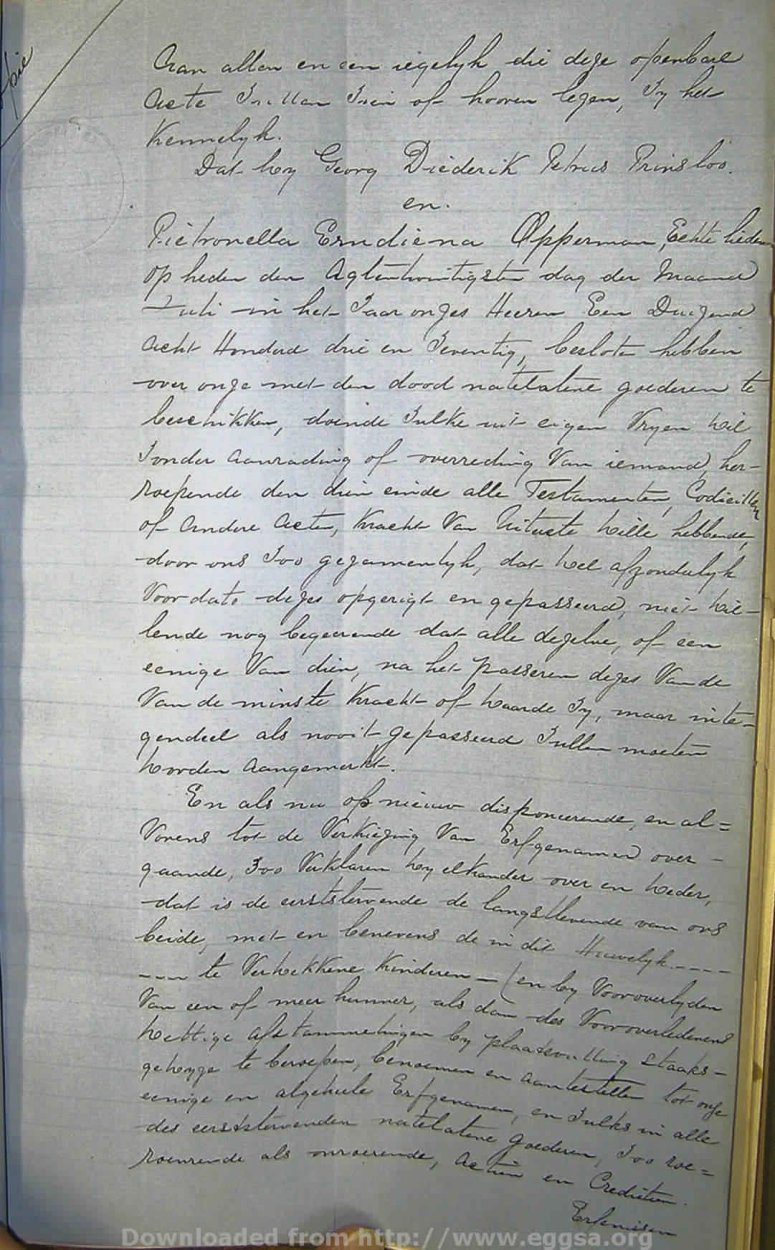 opie
Aan allen en een iegelyk die deze openbare
Acte Zullen Zien of hooren lezen, Zy het
Kennelyk.
Dat Wy Georg Diederik Petrus Prinsloo.
en.
Piétronella Erndiena Opperman, Echte lieden
op heden den Agtentwintigsten dag der Maand
Juli in het Jaar onzes Heeren Een Duizend
Acht Honderd drie en Zeventig, besloten hebben
over onze met den dood natelatene goederen te
beschikken, doende Zulks uit eigen Vryen Wil
Zonder Aanrading of overreding Van iemand, her-
roepende den dien einde alle Testamenten, Codicillen
of Andere Acten, Kracht Van Uiterste Wille hebbende,
door ons Zoo gezamentlyk, dat Wel afzonderlyk
Voor dato dezes opgerigt en gepasseerd, niet Wil-
lende nog begeerende dat alle dezelve, of een
eenige Van dien, na het passeren dezes Van de
Van de minste Kracht of Waarde Zy, maar inte-
gendeel als nooit gepasseerd Zullen moeten
Worden Aangemerkt.
En als nu op nieuw disponeerende, en al=
Vorens tot de Verkiezing Van Erfgenamen over-
gaande, Zoo Verklaren Wy elkander over en Weder,
dat is de eerststervende de langstlevende van ons
beide, met en benevens de in dit Huwelyk ----
---- te Verwekkene Kinderen - (en by Vooroverlyden
Van een of meer hunner, als dan des Vooroverledenens
Wettige afstammelingen by plaatsvulling Staaks-
gewyze te beroepen, benoemen en aantestellen tot onze
eenige en algeheele Erfgenamen, en Zulks in alle
des eerststervenden natelatene goederen, Zoo roe=
roerende als onroerende, Actien en Crediten.
Erfenissen
Downloaded from http://www.eggsa.org